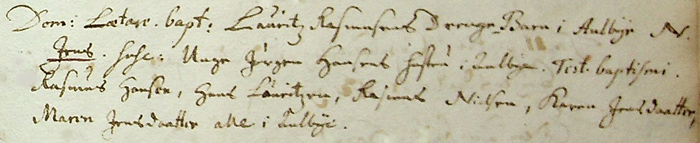 Dom: Lætare. bapt: Lauritz Rasmusens Drenge-Barn i Aulbÿe N.
Jens. Susc: Unge Jørgen Hansens hustru i Aulbÿe. Test. baptismi.
Rasmus Hansen, Hans Lauritzen, Rasmus Nielsen, Karen Jensdaatter,
Maren Jensdaatter alle i Aulbÿe.